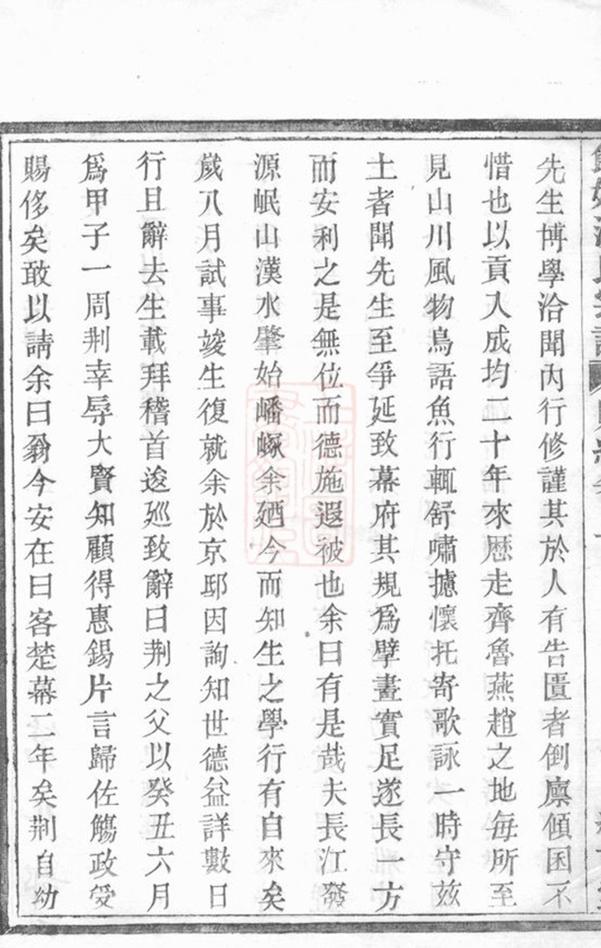 先生博學洽聞內行修謹其於人有告匱者倒廩傾囷不
惜也以貢入成均二十年來歷走齊魯燕趙之地每所至
見山川風物鳥語魚行輒舒嘯攄懷托寄歌詠一時守兹
土者聞先生至爭延致幕府其規爲擘畫實足遂長一方
而安利之是無位而德施遐被也余曰有是哉夫長江發
源岷山漢水肇始嶓冢余廼今而知生之學行有自來矣
歲八月試事竣生復就余於京邸因詢知世德益詳數日
行且辭去生載拜稽首逡廵致辭曰荆之父以癸丑六月
爲甲子一周荆幸辱大賢知顧得惠錫片言歸佐觴政受
賜侈矣敢以請余曰翁今安在曰客楚幕二年矣荆自幼